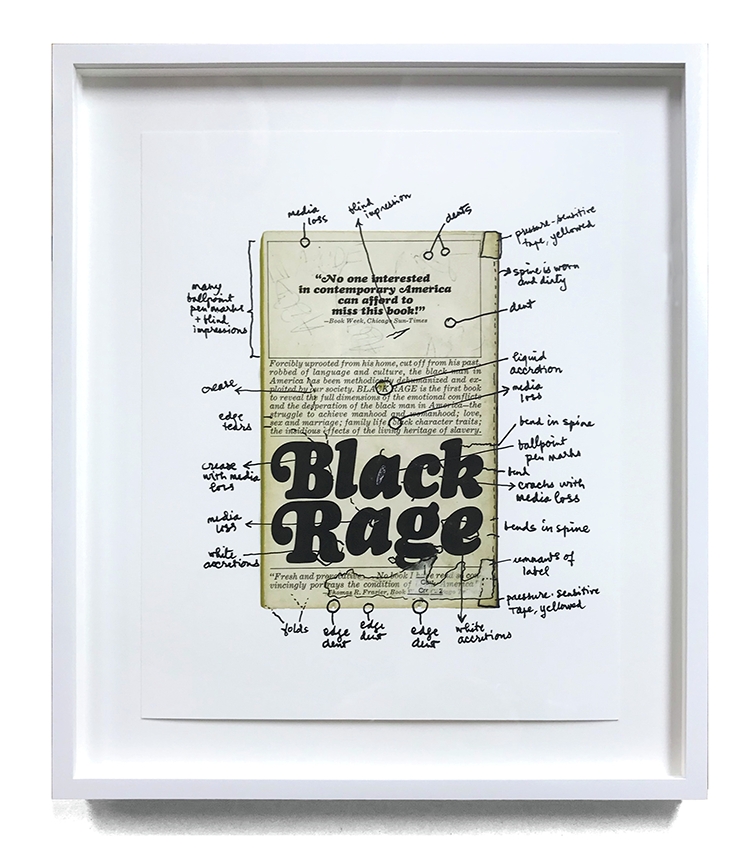 media
loss
blind
impression
dents
pressure-sensitive
tape, yellowed
spine is worn
and dirty
many
ballpoint
pen marks
+ blind
impressions
"No one interested
in contemporary America
can afford to
miss this book!"
—Book Week, Chicago Sun-Times
dent
Forcibly uprooted from his home, cut off from his past,
robbed of language and culture, the black man in
America has been methodically dehumanized and ex-
ploited by our society. BLACK RAGE is the first book
to reveal the full dimensions of the emotional conflicts
and the desperation of the black man in America—the
struggle to achieve manhood and womanhood; love,
sex and marriage; family life; black character traits;
the insidious effects of the living heritage of slavery.
liquid
accretion
crease
media
loss
edge
tears
bend in spine
ballpoint
pen marks
Black
Rage
crease
with media
loss
bend
cracks with
media loss
media
loss
bends in spine
white
accretions
remnants of
label
"Fresh and provocative... No book I have read so con-
vincingly portrays the condition of America"
—Thomas R. Frazier, Book
pressure-sensitive
Tape, yellowed
folds
edge
dent
edge
dent
edge
dent
white
accretions